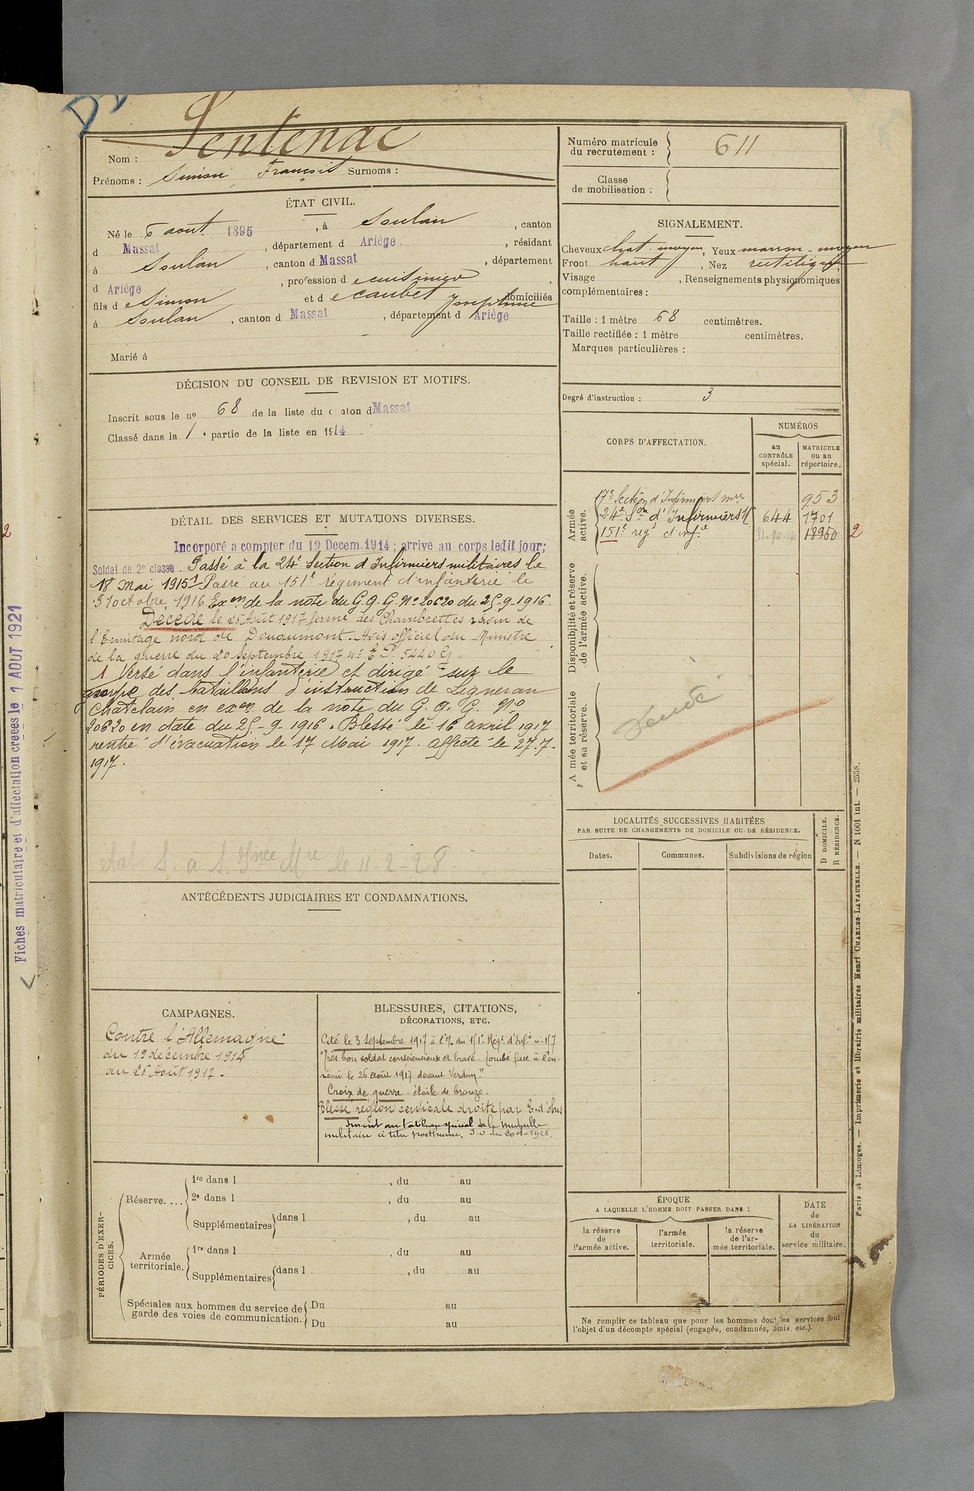 Sentenac
Nom :
Prénoms : Simon, François Surnoms :
Numéro matricule
du recrutement : 611
Classe
de mobilisation :
ÉTAT CIVIL.
Né le 6 aout 1895, à Soulan, canton
d Massat, département d Ariège, résidant
à Soulan, canton d Massat, département
d Ariège, profession d cuisinier,
fils d e Simon et d e Caubet Joséphine domiciliés
à Soulan, canton d Massat, département d Ariège
Marié à
SIGNALEMENT.
Cheveux chat. moyen, Yeux marron-moyen
Front haut, Nez rectiligne
Visage , Renseignements physionomiques
complémentaires :
Taille : 1 mètre 68 centimètres.
Taille rectifiée : 1 mètre centimètres.
Marques particulières :
Degré d'instruction : 3
DÉCISION DU CONSEIL DE REVISION ET MOTIFS.
Inscrit sous le no 68 de la liste du canton d Massat
Classé dans la 1 e partie de la liste en 1914.
CORPS D'AFFECTATION.
NUMÉROS
au
CONTRÔLE
spécial.
MATRICULE
ou au
répertoire.
Armée
active.
17e Section d'Infirmiers mres 953
24e Son d'Infirmiers M 644 1701
151e régt d'inf.ie 18950 2
Disponibilité et réserve
de l'armée active.
Armée territoriale
et sa réserve.
DÉTAIL DES SERVICES ET MUTATIONS DIVERSES.
Incorporé a compter du 19 Decem. 1914; arrive au corps ledit jour;
Soldat de 2e classe. Passé à la 24e Section d'Infirmiers militaires le
18 Mai 1915 1 Passé au 151e régiment d'infanterie le
31 octobre 1916 Exon de la note du G.Q.G. No 20620 du 25-9-1916.
Décédé le 26 Août 1917 ferme des Chambrettes ravin de
l'Ermitage nord de Douaumont. Avis officiel du Ministre
de la guerre du 20 septembre 1917 no
1 Versé dans l'infanterie et dirigé sur le
groupe des bataillons d'instruction de Ligneran
Chatelain en exon de la note du G.Q.G. No
20620 en date du 25-9-1916. Blessé le 16 avril 1917
rentré d'évacuation le 17 Mai 1917. affecté le 27-7-
1917.
le 11-2-28
LOCALITÉS SUCCESSIVES HABITÉES
PAR SUITE DE CHANGEMENTS DE DOMICILE OU DE RÉSIDENCE.
D DOMICILE.
R RÉSIDENCE.
Dates.
Communes.
Subdivisions de région
ANTÉCÉDENTS JUDICIAIRES ET CONDAMNATIONS.
CAMPAGNES.
Contre l'Allemagne
du 19 décembre 1914
au 26 Août 1917.
BLESSURES, CITATIONS,
DÉCORATIONS, ETC.
Cité le 3 Septembre 1917 à l'O/ du 151e Régt d'Infie
"Très bon soldat consciencieux et brave. Tombé face à l'en-
nemi le 26 août 1917 devant Verdun"
Croix de guerre étoile de bronze.
Blessé région cervicale droite par E. d'obus
Inscrit au tableau spécial de la médaille
militaire à titre posthume. J.O du 20-1921.
PÉRIODES D'EXER-
CICES.
Réserve....
1re dans l , du au
2e dans l , du au
Supplémentaires dans l , du au
Armée
territoriale.
1re dans l , du au
Supplémentaires dans l , du au
Spéciales aux hommes du service de
garde des voies de communication.
Du au
Du au
ÉPOQUE
A LAQUELLE L'HOMME DOIT PASSER DANS :
la réserve
de
l'armée active.
l'armée
territoriale.
la réserve
de l'ar-
mée territoriale.
DATE
de
LA LIBÉRATION
du
service militaire.
Ne remplir ce tableau que pour les hommes dont les services font
l'objet d'un décompte spécial (engagés, condamnés, omis, etc.).
Paris et Limoges. — Imprimerie et librairie militaires Henri CHARLES-LAVAUZELLE. — N 1001 int. — 2558.
Fiches matriculaire et d'affectation créées le 1 AOUT 1921
2